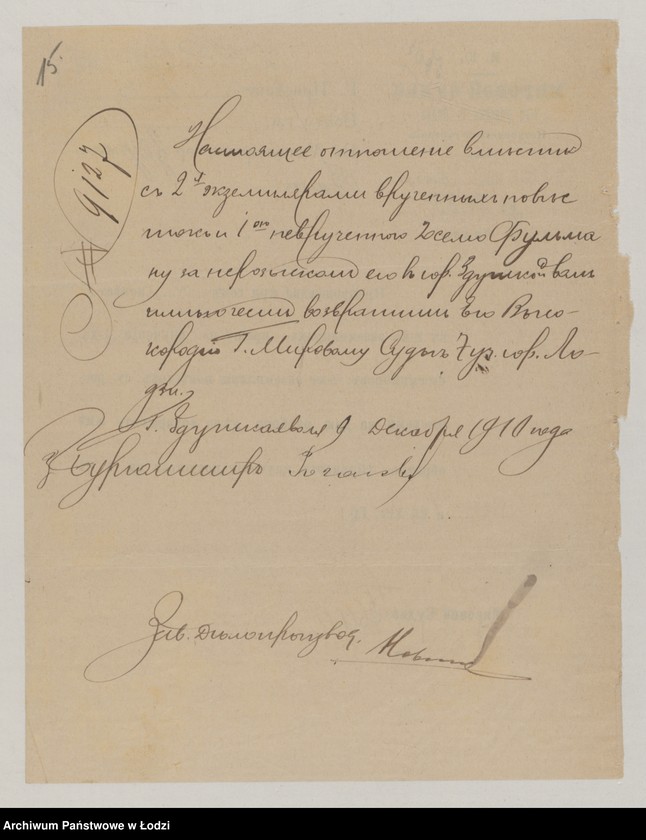 15.
№ 9127
Настоящее отношение вместе
съ 2я экземплярами врученныхъ повѣс
токъ и 1ою неврученною Іосемъ Фульма
ну за нерозыскомъ его въ гор. Здунской волѣ
имѣю честь возвратить Его Высо-
кородію Г. Мировому Судьѣ 7 уч. гор. Ло-
дзи.
Г. Здунская воля 9 Декабря 1910 года
Бургомистръ
Зав. Дѣлопроизвод.
Archiwum Państwowe w Łodzi